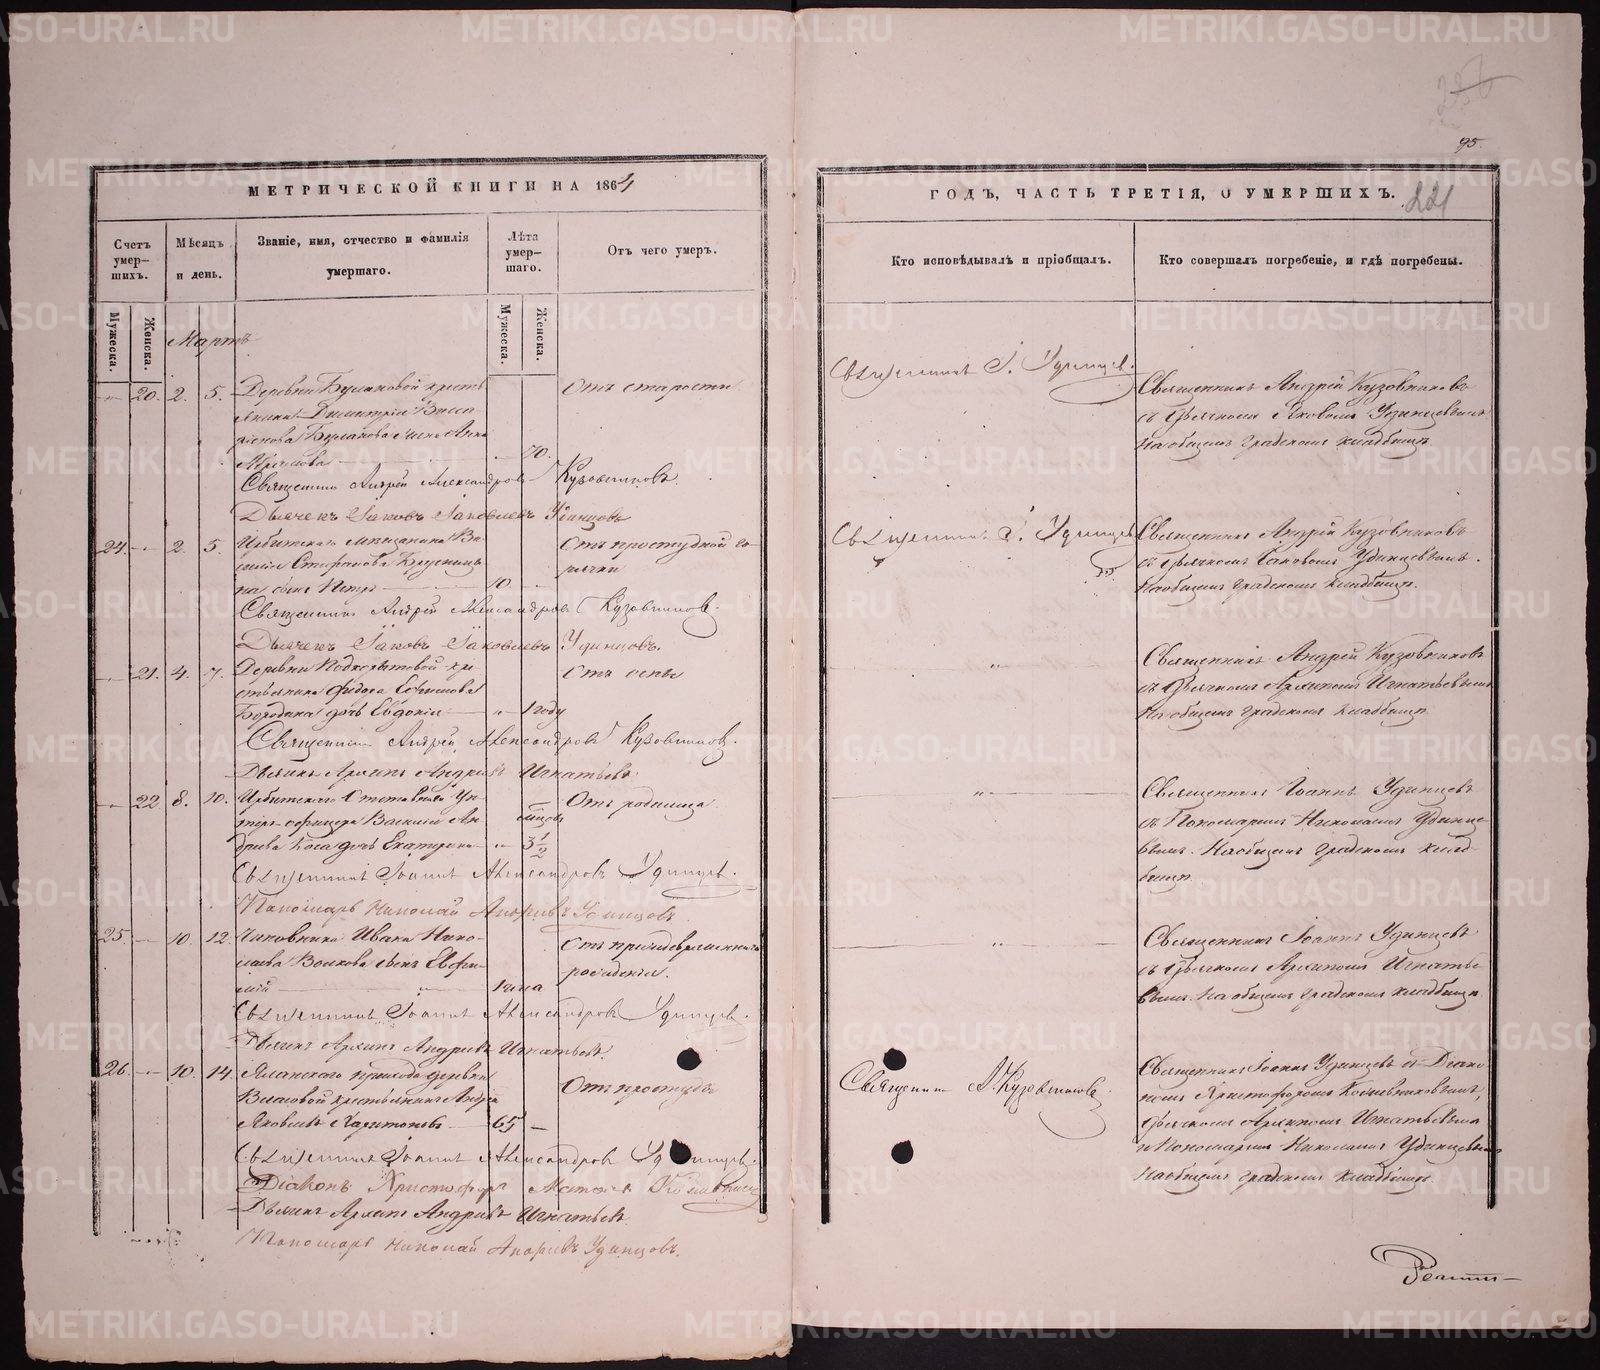 МЕТРИЧЕСКОЙ КНИГИ НА 1864
Счетъ умер-шихъ.
Мѣсяцъ и день.
Званіе, имя, отчество и фамилія умершаго.
Лѣта умер-шаго.
Отъ чего умеръ.
Мужеска.
Женска.
Мужеска.
Женска.
Мартъ
20. 2. 5. Деревни Булановой кресть
янина Димитрія Васса
Буланова жена Анна
70.
Отъ старости
Священникъ Андрей Александровъ Кузовниковъ
Дьячекъ Іаковъ Іаковлевъ Удинцовъ
24. 2. 5. Ирбитскаго мѣщанина Ва
силія Стефанова
на сынъ Петръ 10
Отъ простудной го
рячки
Священникъ Андрей Александровъ Кузовниковъ.
Дьячекъ Іаковъ Іаковлевъ Удинцовъ.
21. 4. 7. Деревни Подкорытовой кре
стьянина Федора Ефимова
Бородина дочь Евдокія 1 году
Отъ оспы
Священникъ Андрей Александровъ Кузовниковъ.
Дьячекъ Архипъ Андреевъ Игнатьевъ
22 8. 10. Ирбитскаго Отставнаго Ун
теръ офицера Василія Ан
дреева Коса дочь Екатерина
мѣсцов 3 1/2
Отъ родимца
Священникъ Іоаннъ Александровъ Удинцевъ.
Пономарь Николай Андреевъ Удинцовъ
25. 10. 12. Чиновника Ивана Нико-
лаева Волкова сынъ Евфи-
мій 1 часа
Отъ преждевременнаго
рожденія.
Священникъ Іоаннъ Александровъ Удинцевъ.
Дьячекъ Архипъ Андреевъ Игнатьевъ.
26. 10. 14. прихода деревни
крестьянинъ Андрей
Яковлевъ Харитоновъ 65
Отъ простуды
Священникъ Іоаннъ Александровъ Удинцевъ.
Діаконъ Христофоръ
Дьячекъ Архипъ Андреевъ Игнатьевъ
Пономарь Николай Андреевъ Удинцовъ.
95.
ГОДЪ, ЧАСТЬ ТРЕТІЯ, О УМЕРШИХЪ.
221
Кто исповѣдывалъ и пріобщалъ.
Кто совершалъ погребеніе, и гдѣ погребены.
Священникъ І. Удинцевъ.
Священникъ Андрей Кузовниковъ
съ Дьячкомъ Яковомъ Удинцевымъ
На общемъ градскомъ кладбищѣ.
Священникъ І. Удинцевъ
Священникъ Андрей Кузовниковъ
съ Дьячкомъ Іаковомъ Удинцевымъ.
На общемъ градскомъ кладбищѣ.
Священникъ Андрей Кузовниковъ
съ Дьячкомъ Архипомъ Игнатьевымъ
На общемъ градскомъ кладбищѣ
Священникъ Іоаннъ Удинцевъ
съ Пономаремъ Николаемъ Удинце-
вымъ. На общемъ градскомъ клад-
бищѣ.
Священникъ Іоаннъ Удинцевъ
съ Дьячкомъ Архипомъ Игнатье-
вымъ. На общемъ градскомъ кладбищѣ.
Священникъ А. Кузовниковъ
Священникъ Іоаннъ Удинцевъ съ Діако-
номъ Христофоромъ
Дьячкомъ Архипомъ Игнатьевымъ
и Пономаремъ Николаемъ Удинцевымъ
На общемъ градскомъ кладбищѣ.
METRIKI.GASO-URAL.RU